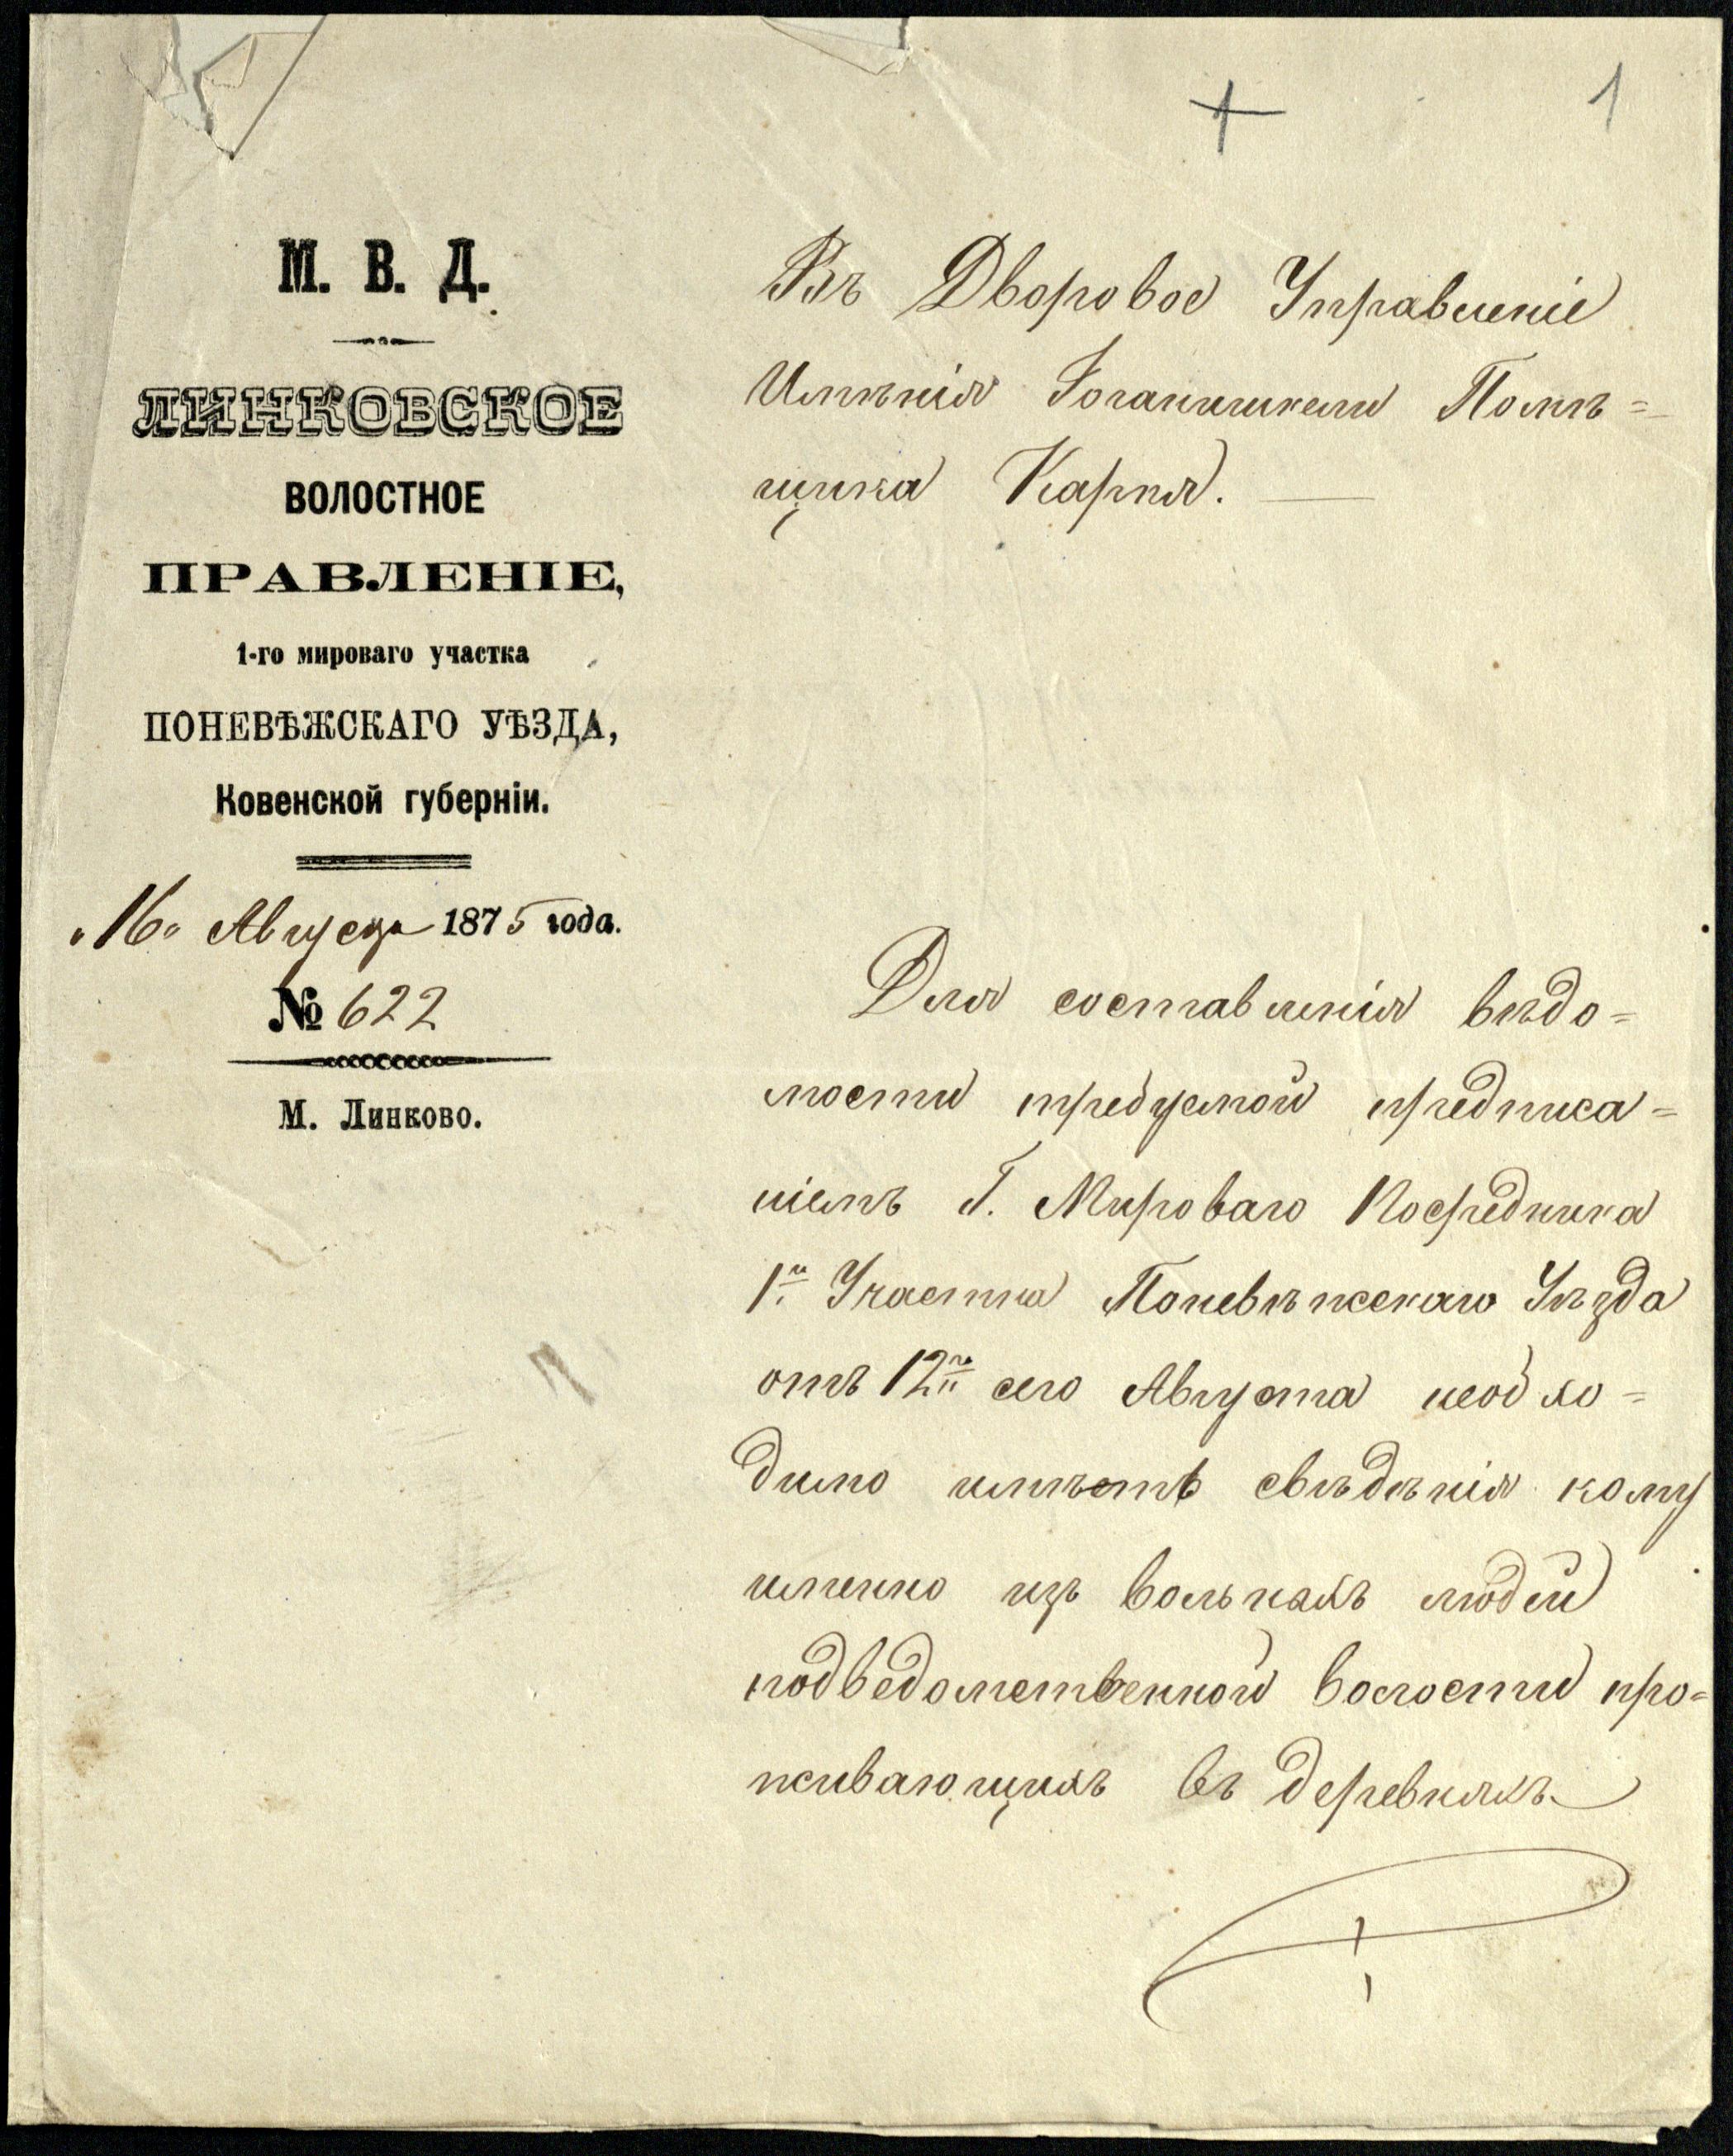 1
М. В. Д.
ЛИНКОВСКОЕ
ВОЛОСТНОЕ
ПРАВЛЕНІЕ,
1-го мироваго участка
ПОНЕВѢЖСКАГО УѢЗДА,
Ковенской губерніи.
„16" Августа 1875 года.
№ 622
М. Линково.
Въ Дворовое Управленіе
Имѣнія Іоганишкели Помѣ=
щика Карпя.
Для составленія вѣдо=
мости требуемой предписа=
ніемъ Г. Мироваго Посредника
1го Участка Поневѣжскаго Уѣзда
отъ 12го сего Августа необхо=
димо имѣть свѣдѣнія кому
именно изъ вольныхъ людей
подведомственной волости про=
живающихъ въ деревняхъ